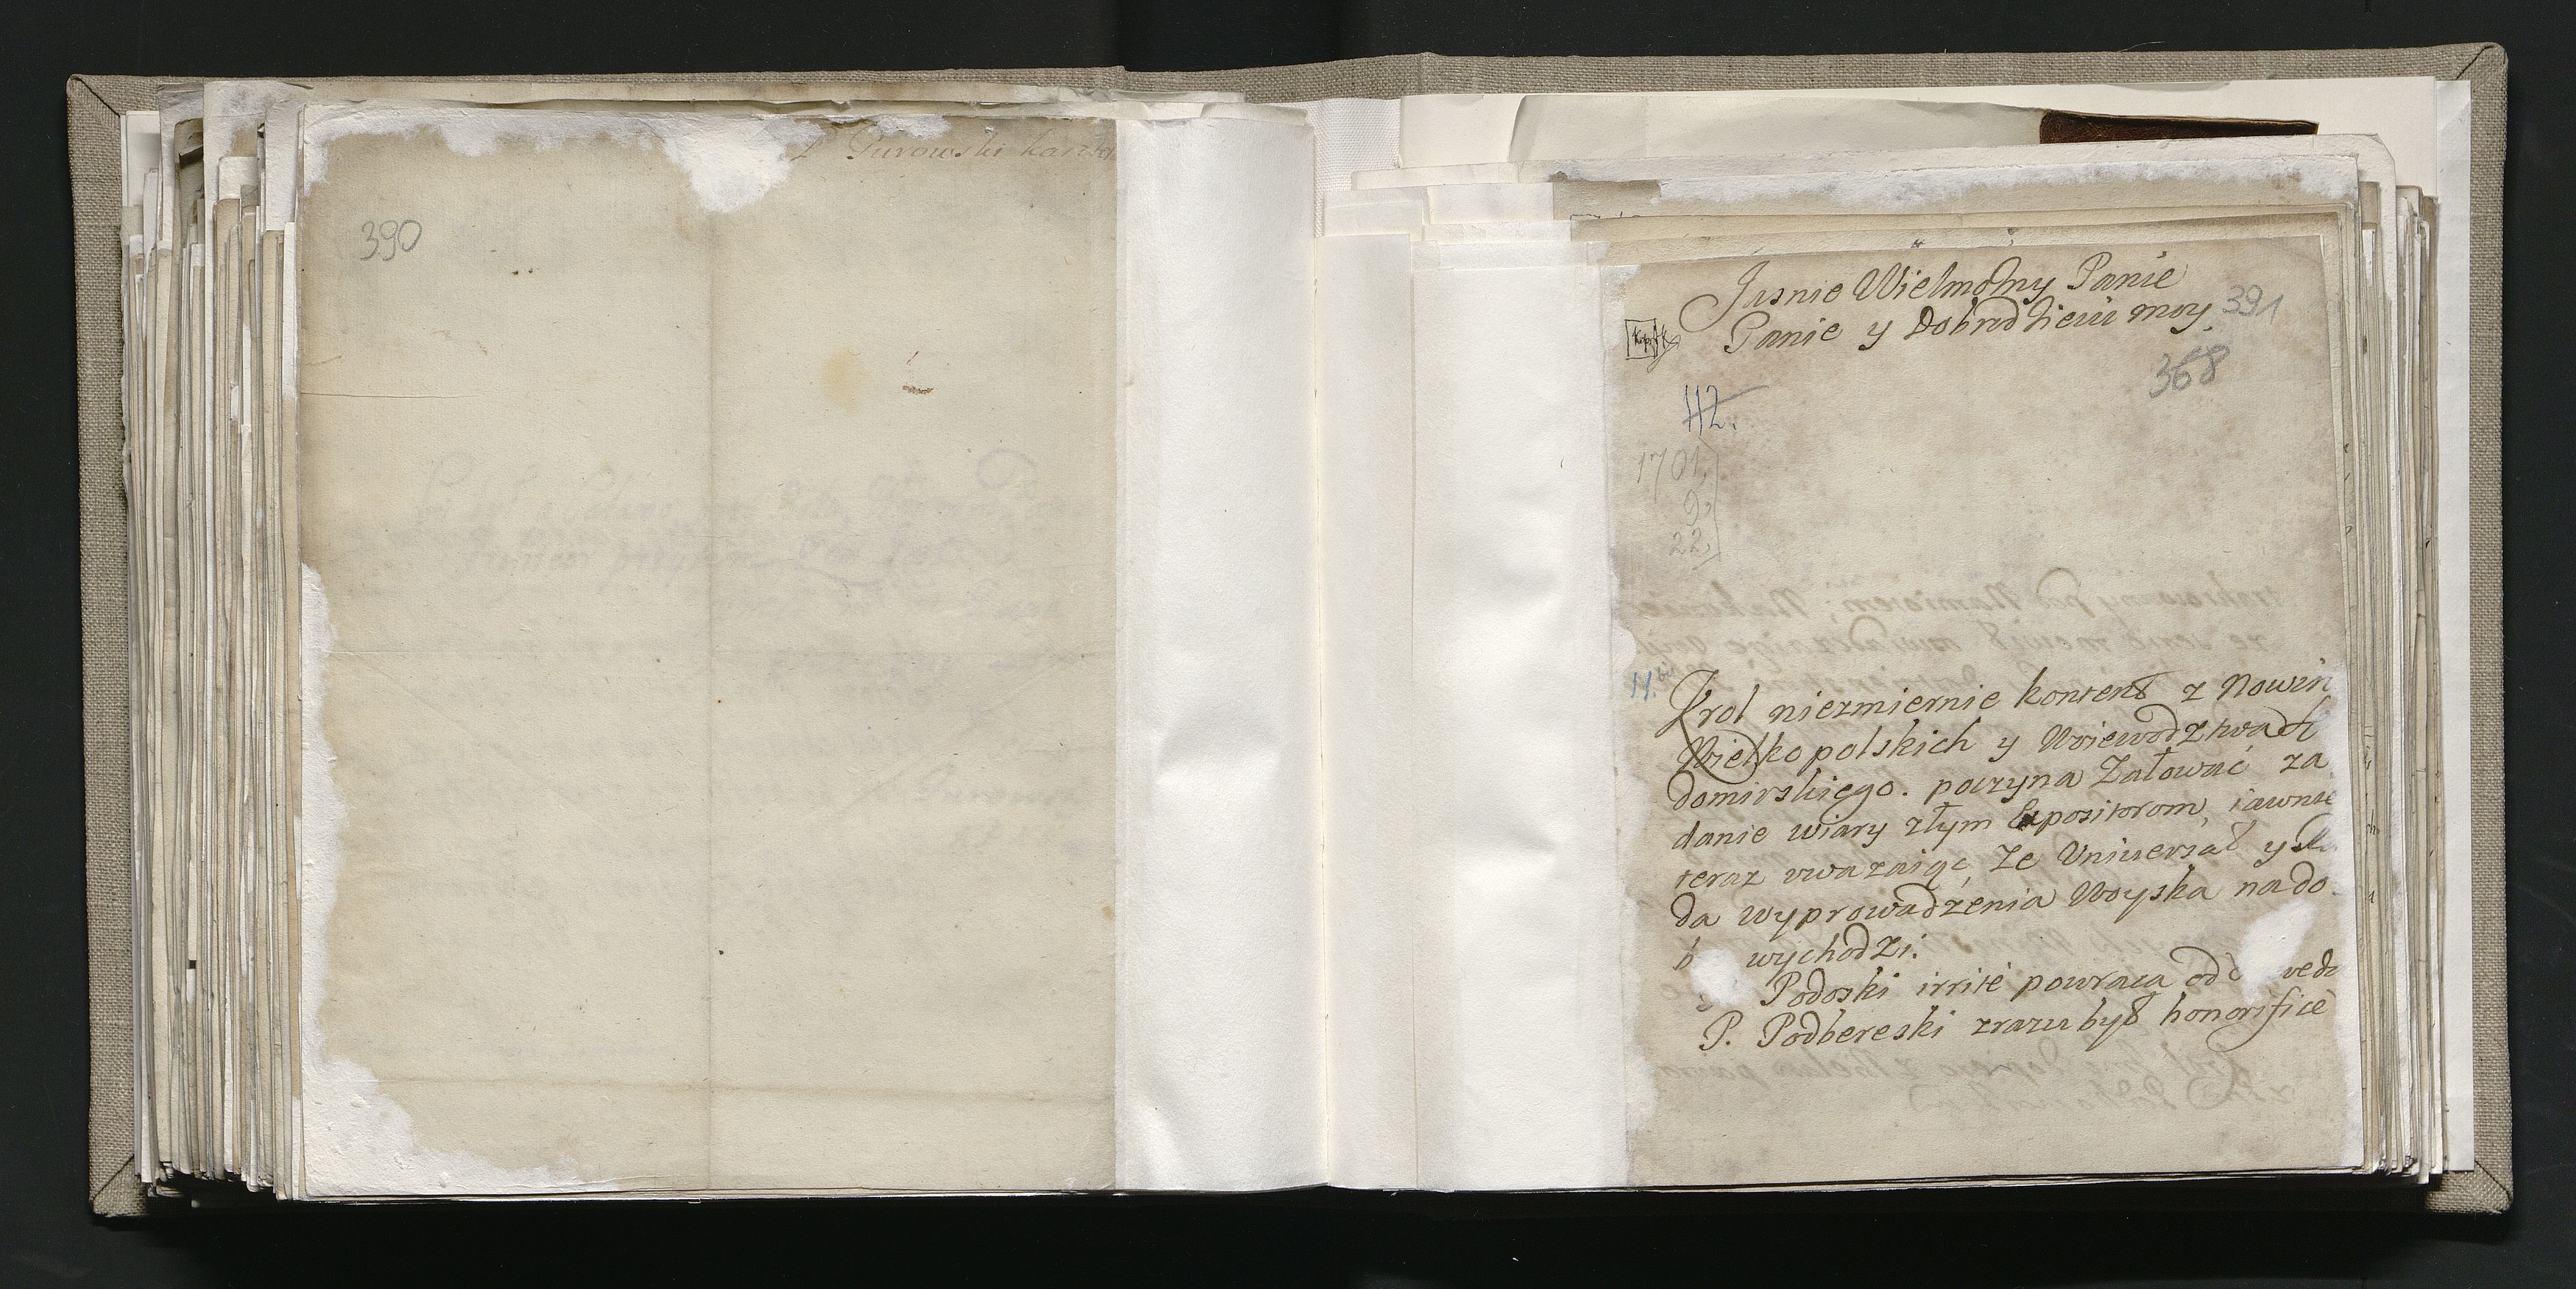 Gurowski
390
Jasnie Wielmożny Panie
Panie y Dobrodzieiu moy
391
368
112.
1701,
9,
22,
Krol niezmiernie kontent z Nowin
Wielkopolskich y Woiewodztwa
domirskiego. poczyna Załować za
danie wiary złym Expositorom, iawnie
teraz uwazaiąc, Ze Uniuersał y
da wyprowadzenia Woyska nado
wychodzi.
Podoski irritè powraca od
P. Podbereski zrazu był honorificè